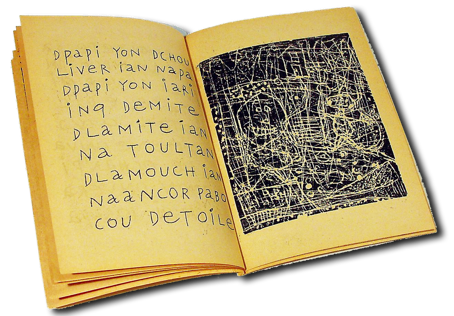 DPAPI YON DCHOU
LIVER IAN NAPA
DPAPI YON IARI
INQ DEMITE
DLAMITE IAN
NA TOULTAN
DLAMOUCH IAN
NAANCOR PABO
COU DETOILE